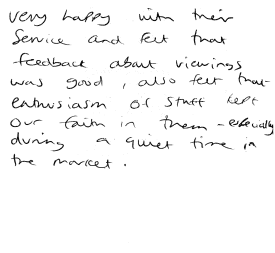 very happy with their
Service and felt that
feedback about viewings
was good, also felt that
enthusiasm of staff kept
our faith in them - especially
during a quiet time in
the market.